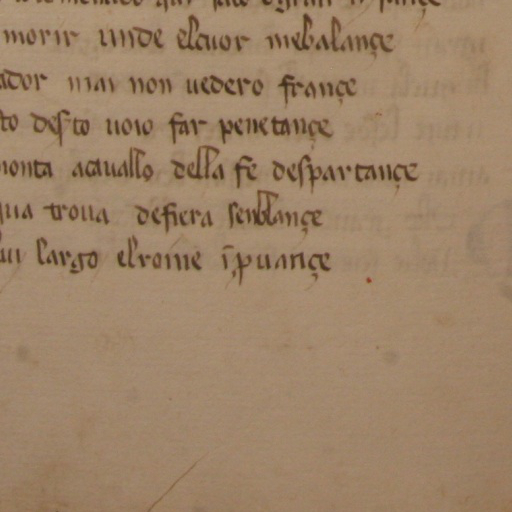 morir unde elcuor mebalançe
ador mai non uedero françe
to desto uoio far penetançe
monta acauallo della fe despartançe
qua troua defiera senblançe
lui largo elronie ĩpuançe